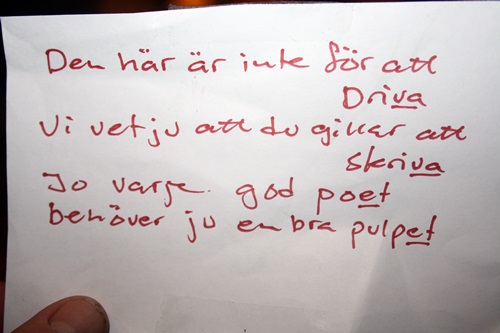 Den här är inte för att
Driva
Vi vet ju att du gillar att
skriva
Jo varje god poet
behöver ju en bra pulpet